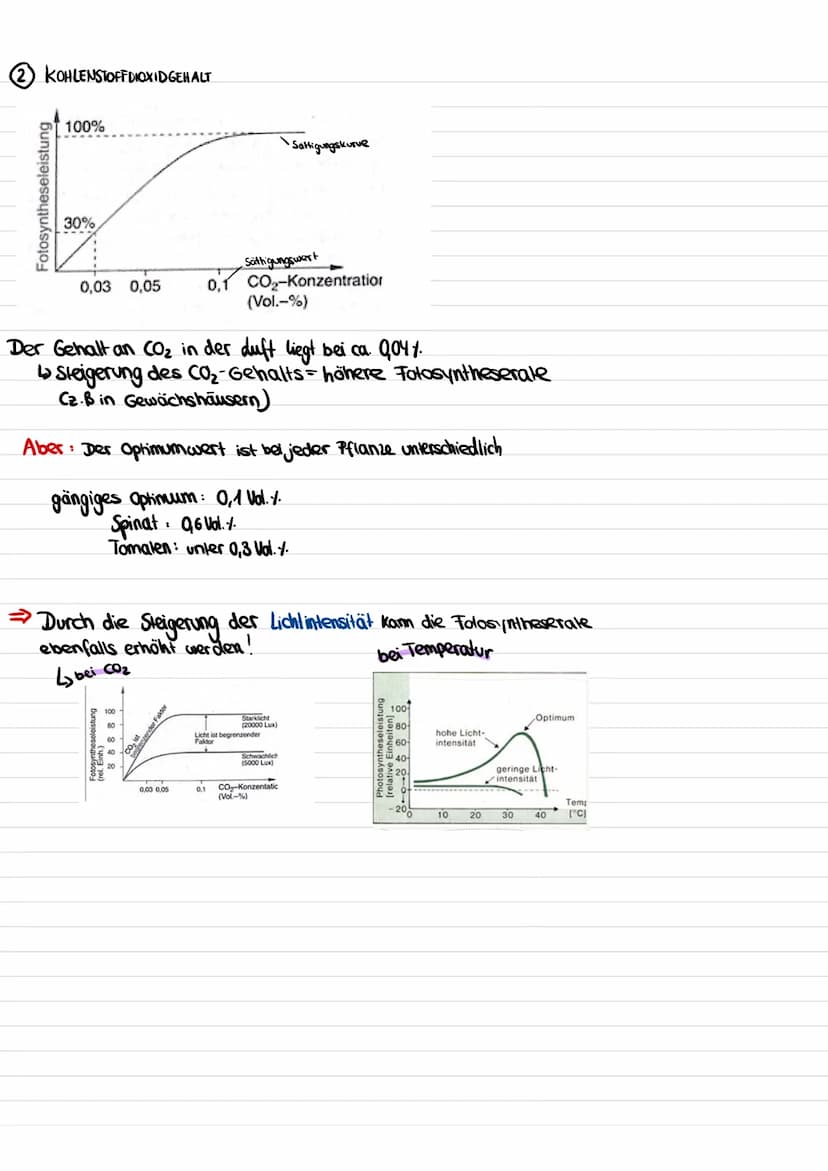 ② KOHLENSTOFFDIOXIDGEHALT
Fotosyntheseleistung
100%
Sättigungskurve
30%
Sättigungswert
0,03 0,05 0,1 CO₂-Konzentration
(Vol.-%)
Der Gehalt an CO₂ in der Luft liegt bei ca. 0,04 %.
↳ Steigerung des CO₂-Gehalts = höhere Fotosyntheserate
(z.B in Gewächshäusern)
Aber: Der Optimumwert ist bei jeder Pflanze unterschiedlich
gängiges Optimum: 0,1 Vol.%.
Spinat: 0,6 Vol.%.
Tomaten: unter 0,3 Vol.%.
⇒ Durch die Steigerung der Lichtintensität kann die Fotosyntheserate
ebenfalls erhöht werden!
↳ bei CO₂
bei Temperatur
Fotosyntheseleistung
(rel. Einh.)
100
80
60
40
20
CO₂ ist
begrenzender Faktor
Starklicht
(20000 Lux)
Licht ist begrenzender
Faktor
Schwachlich
(5000 Lux)
0,03 0,05 0,1 CO₂-Konzentatio
(Vol.-%)
Photosyntheseleistung
[relative Einheiten]
100
80
60
40
20
0
-20
Optimum
hohe Licht-
intensität
geringe Licht-
intensität
Temp
[°C]
0 10 20 30 40